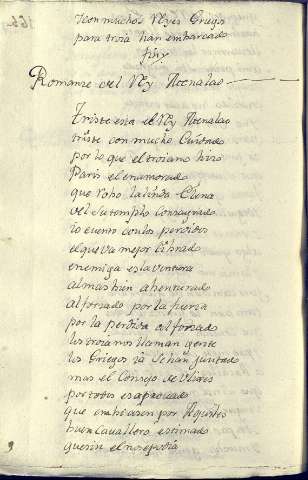 con muchos Reyes Griegos
para troia han embarcado
fin
Romanze del Rey Menalao
Triste esta el Rey Menalao
triste con mucho Cuidado
por lo que el troiano hizo
Paris el enamorado
que robo la linda Elena
del su templo consagrado
en los perdidos
el que va mejor librado
enemiga es la ventura
al mas bien abenturado
al forzado por la fuerza
por la perdida al forzado
los troianos llaman gente
los Griegos la se han juntado
mas el Consejo de Ulixes
por todos es aprovado
que embiasen por Aquiles
buen Cavallero estimado